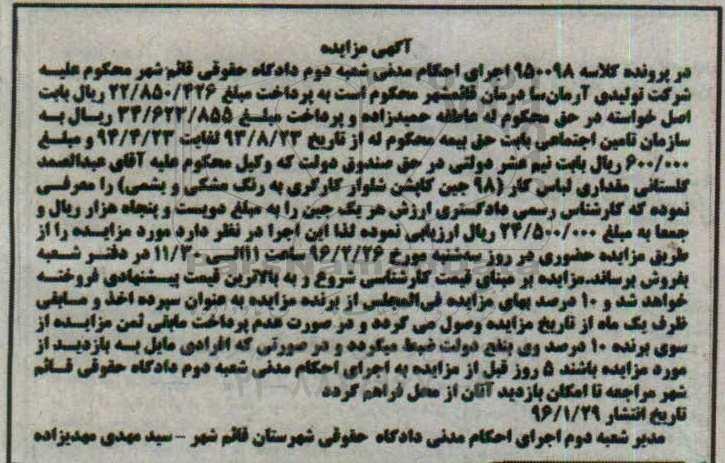 آگهی مزایده
در پرونده کلاسه ۹۵۰۰۹۸ اجرای احکام مدنی شعبه دوم دادگاه حقوقی قائم شهر محکوم علیه
شرکت تولیدی آرمان‌سا درمان قائمشهر محکوم است به پرداخت مبلغ ۲۲/۸۵۰/۴۲۶ ریال بابت
اصل خواسته در حق محکوم له عاطفه حمیدزاده و پرداخت مبلغ ۳۴/۶۲۳/۸۵۵ ریال به
سازمان تامین اجتماعی بابت حق بیمه محکوم له از تاریخ ۹۳/۸/۲۳ لغایت ۹۴/۴/۲۳ و مبلغ
۶۰۰/۰۰۰ ریال بابت نیم عشر دولتی در حق صندوق دولت که وکیل محکوم علیه آقای عبدالصمد
گلستانی مقداری لباس کار (۹۸ جین کاپشن شلوار کارگری به رنگ مشکی و یشمی) را معرفی
نموده که کارشناس رسمی دادگستری ارزش هر یک جین را به مبلغ دویست و پنجاه هزار ریال و
جمعا به مبلغ ۲۴/۵۰۰/۰۰۰ ریال ارزیابی نموده لذا این اجرا در نظر دارد مورد مزایده را از
طریق مزایده حضوری در روز سه‌شنبه مورخ ۹۶/۲/۲۶ ساعت ۱۱الی ۱۱/۳۰ در دفتر شعبه
بفروش برساند.مزایده بر مبنای قیمت کارشناسی شروع و به بالاترین قیمت پیشنهادی فروخته
خواهد شد و ۱۰ درصد بهای مزایده فی‌المجلس از برنده مزایده به عنوان سپرده اخذ و مابقی
ظرف یک ماه از تاریخ مزایده وصول می گردد و در صورت عدم پرداخت مابقی ثمن مزایده از
سوی برنده ۱۰ درصد وی بنفع دولت ضبط میگردد و در صورتی که افرادی مایل به بازدید از
مورد مزایده باشند ۵ روز قبل از مزایده به اجرای احکام مدنی شعبه دوم دادگاه حقوقی قائم
شهر مراجعه تا امکان بازدید آنان از محل فراهم گردد
تاریخ انتشار ۹۶/۱/۲۹
مدیر شعبه دوم اجرای احکام مدنی دادگاه حقوقی شهرستان قائم شهر - سید مهدی مهدیزاده